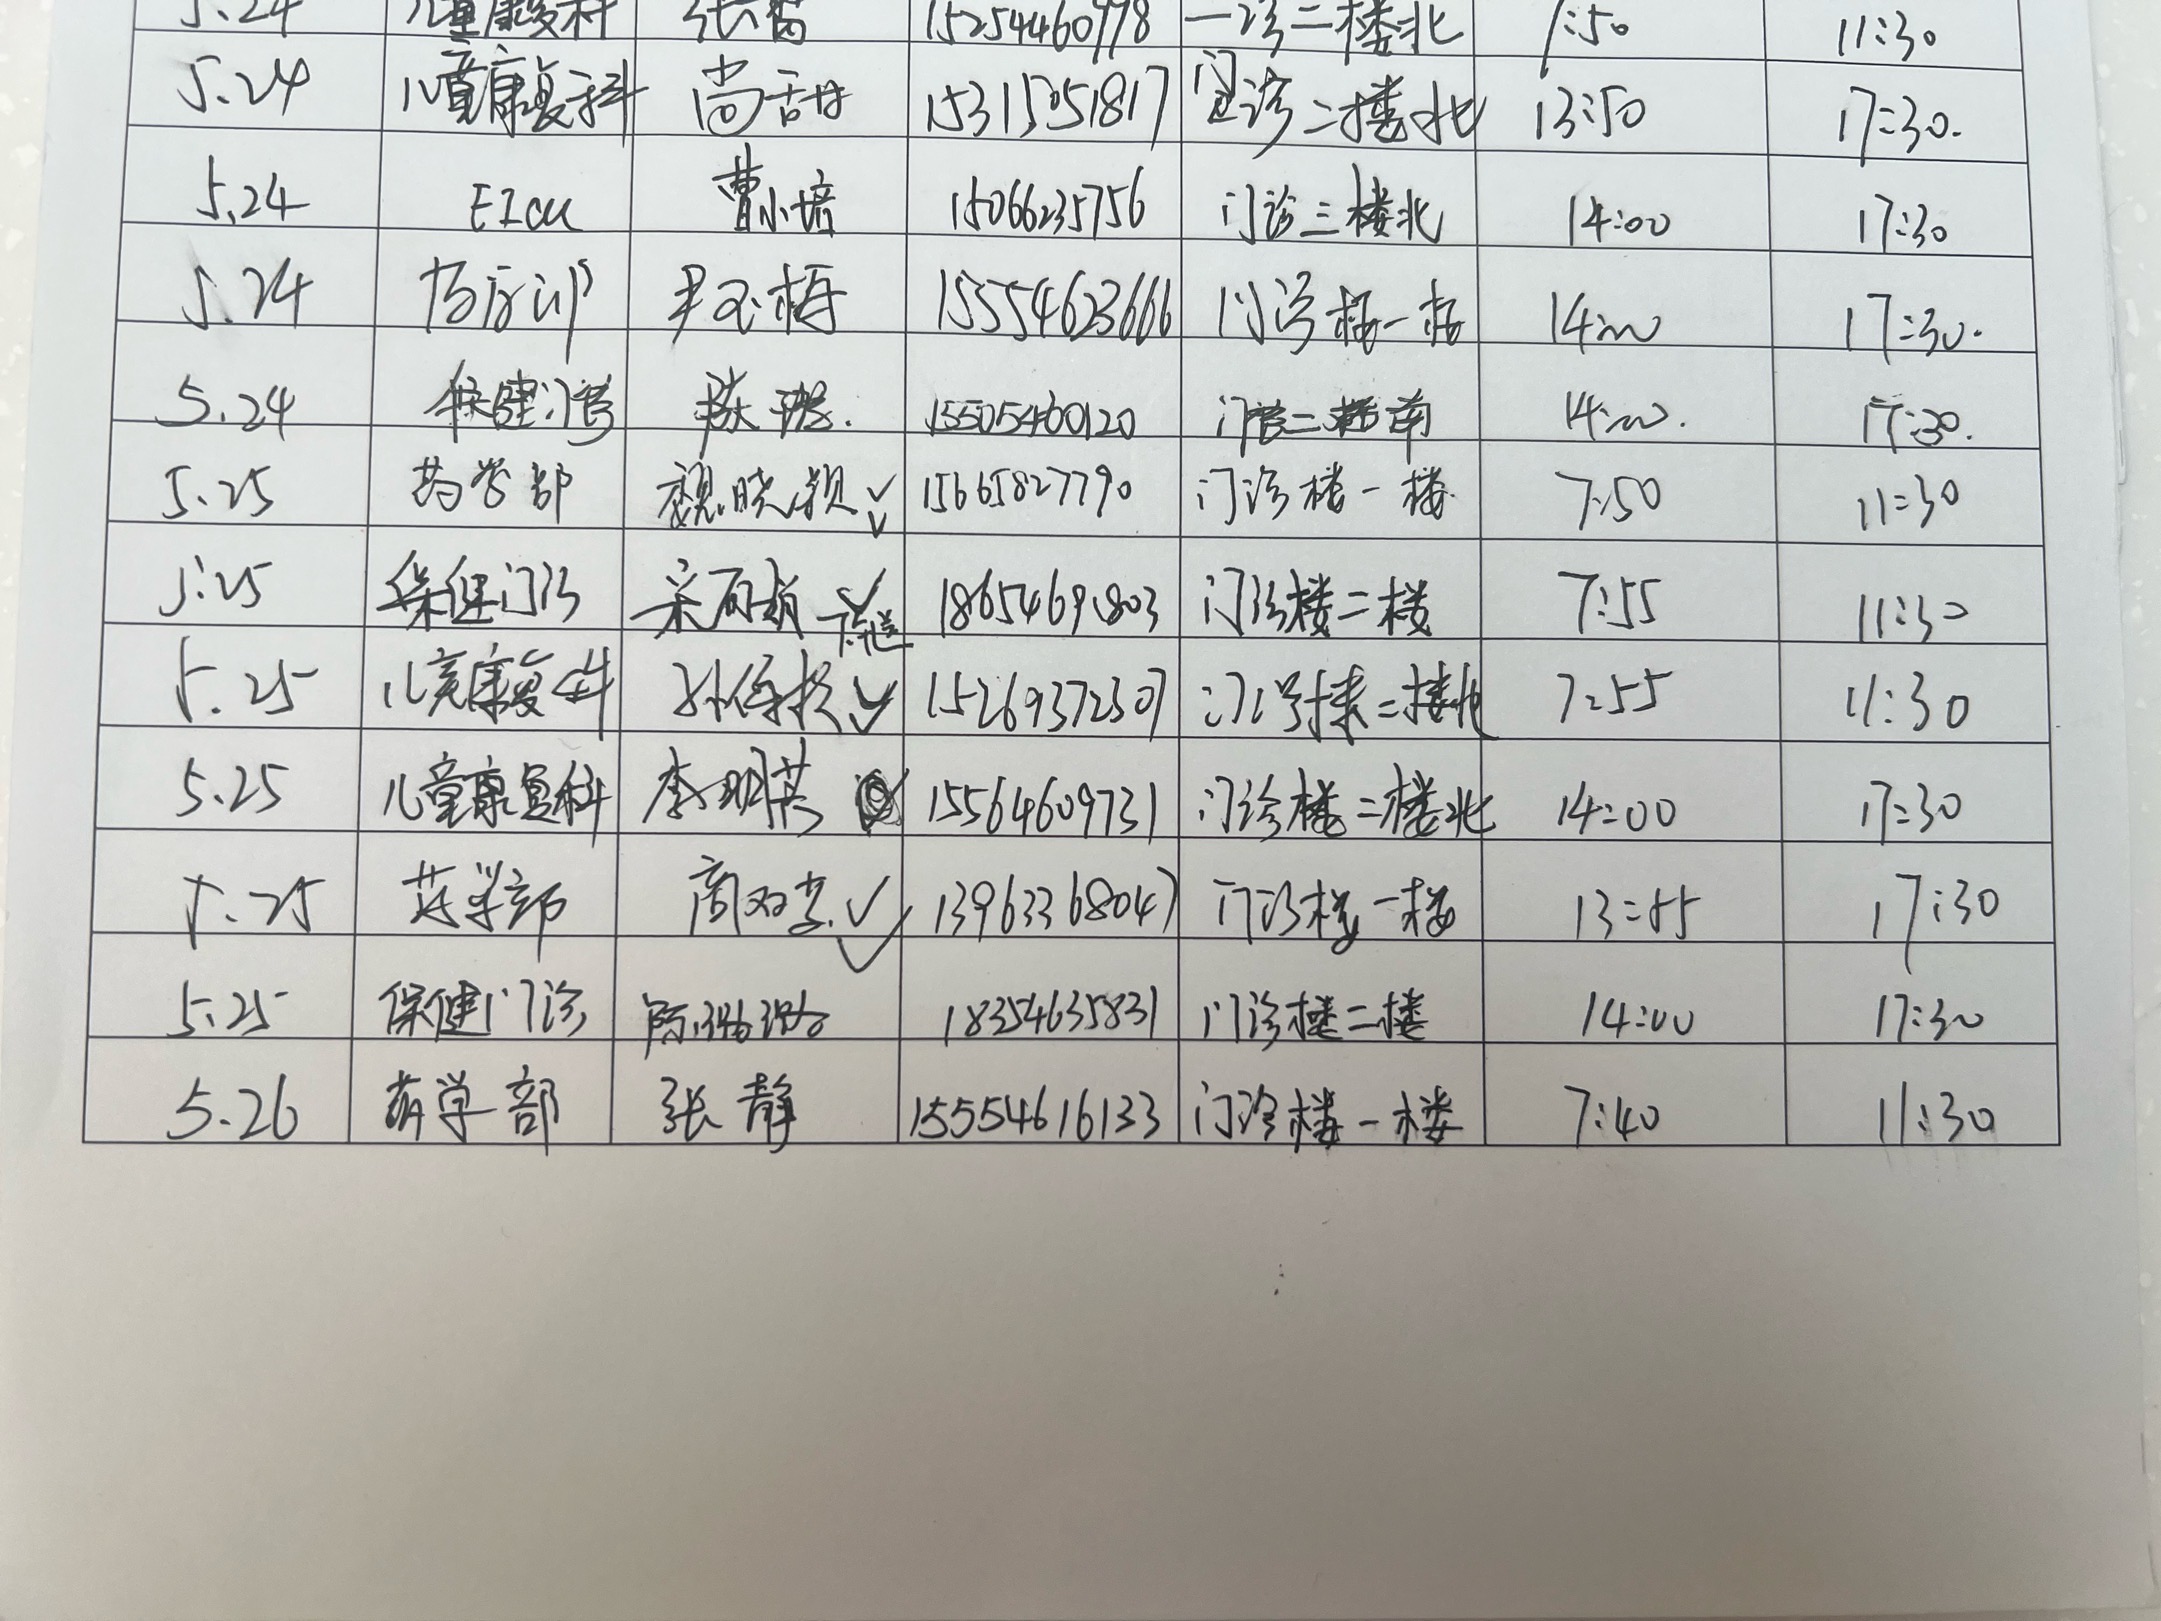 5.24 儿童康复科 张 15254460998 诊二楼北 7:50 11:30
5.24 儿童康复科 尚甜 15315051817 门诊二楼北 13:50 17:30.
5.24 EICU 曹小培 15066235756 门诊三楼北 14:00 17:30
5.24 尹玉梅 15554623666 门诊楼一楼 14:00 17:30.
5.24 保健门诊 15505460120 门诊二楼南 14:00. 17:30.
5.25 药学部 魏晓颖 ✓ 15665827790 门诊楼一楼 7:50 11:30
5.25 保健门诊 ✓ 18654691803 门诊楼二楼 7:55 11:30
5.25 儿童康复科 ✓ 15269372307 门诊楼二楼北 7:55 11:30
5.25 儿童康复科 李明芮 15564609731 门诊楼二楼北 14:00 17:30
5.25 药学部 ✓ 13963368047 门诊楼一楼 13:55 17:30
5.25 保健门诊 陈 18354635831 门诊楼二楼 14:00 17:30
5.26 药学部 张静 15554616133 门诊楼一楼 7:40 11:30